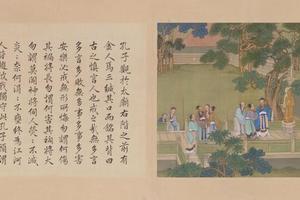 孔子觀於太廟右階之前有
金人焉三緘其口而銘其背曰
古之慎言人也戒之哉無多言
多言多敗無多事多事多害
安樂必戒無所行悔勿謂何傷
其禍將長勿謂何害其禍將大
勿謂莫聞神將伺人熒〻不滅
炎〻奈何涓〻不壅終為江河
人皆趨彼我獨守此孔子顧謂